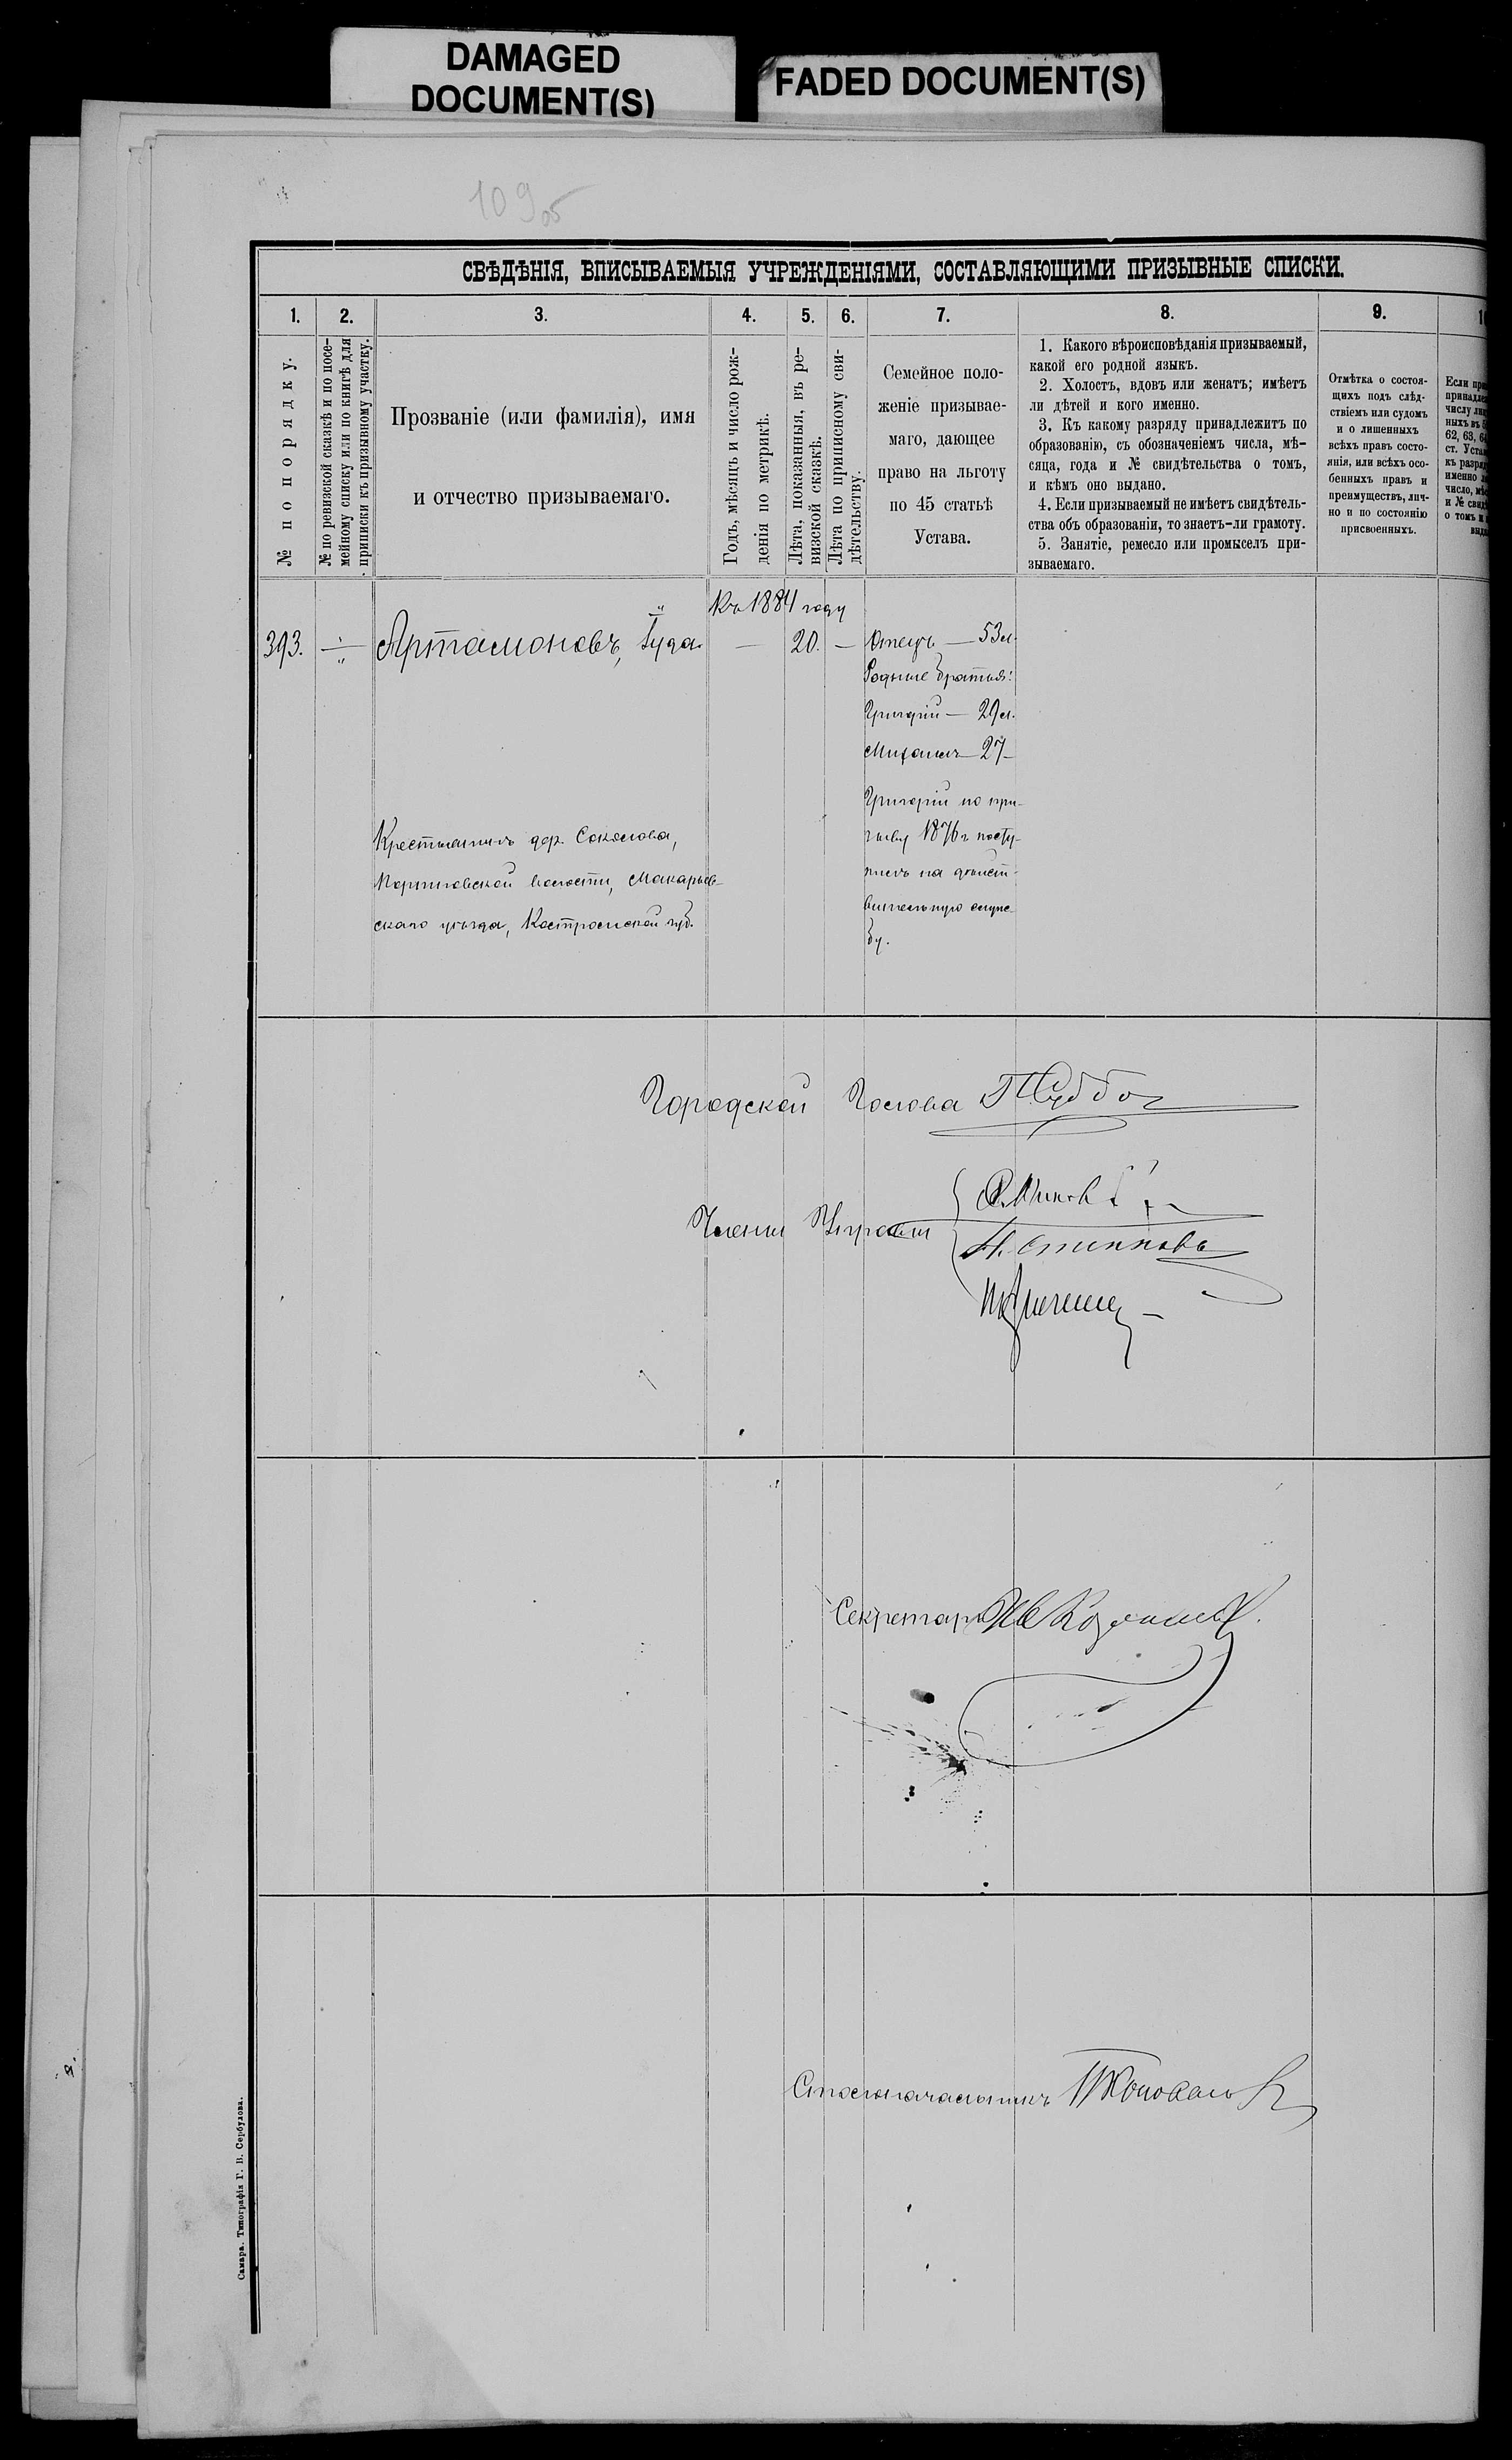 DAMAGED
DOCUMENT(S)
FADED DOCUMENT(S)
109 об
СВѢДѢНІЯ, ВПИСЫВАЕМЫЯ УЧРЕЖДЕНІЯМИ, СОСТАВЛЯЮЩИМИ ПРИЗЫВНЫЕ СПИСКИ.
1. 2. 3. 4. 5. 6. 7. 8. 9.
№ по порядку.
№ по ревизской сказкѣ и по посе-
мейному списку или по книгѣ для
приписки къ призывному участку.
Прозваніе (или фамилія), имя
и отчество призываемаго.
Годъ, мѣсяцъ и число рож-
денія по метрикѣ.
Лѣта, показанныя, въ ре-
визской сказкѣ.
Лѣта по приписному сви-
дѣтельству.
Семейное поло-
женіе призывае-
маго, дающее
право на льготу
по 45 статьѣ
Устава.
1. Какого вѣроисповѣданія призываемый,
какой его родной языкъ.
2. Холостъ, вдовъ или женатъ; имѣетъ
ли дѣтей и кого именно.
3. Къ какому разряду принадлежитъ по
образованію, съ обозначеніемъ числа, мѣ-
сяца, года и № свидѣтельства о томъ,
и кѣмъ оно выдано.
4. Если призываемый не имѣетъ свидѣтель-
ства объ образованіи, то знаетъ-ли грамоту.
5. Занятіе, ремесло или промыселъ при-
зываемаго.
Отмѣтка о состоя-
щихъ подъ слѣд-
ствіемъ или судомъ
и о лишенныхъ
всѣхъ правъ состо-
янія, или всѣхъ осо-
бенныхъ правъ и
преимуществъ, лич-
но и по состоянію
присвоенныхъ.
Если
числу
62, 63,
ст.
именно
число,
и №
о томъ и
Къ 1884 году
393. — Артамоновъ, Іуда. — 20. — Отецъ — 53 л.
Родные братья:
Григорій — 29 л.
Михаилъ — 27 —
Григорій по при-
зыву 1876 г. посту-
пилъ на дѣйст-
вительную служ-
бу.
Крестьянинъ дер. Соколова,
волости, Макарьев-
скаго уѣзда, Костромской губ.
Городской Голова
Члены Управы
Секретарь
Столоначальникъ П Коновалов
Самара. Типографія Г. В. Сербулова.